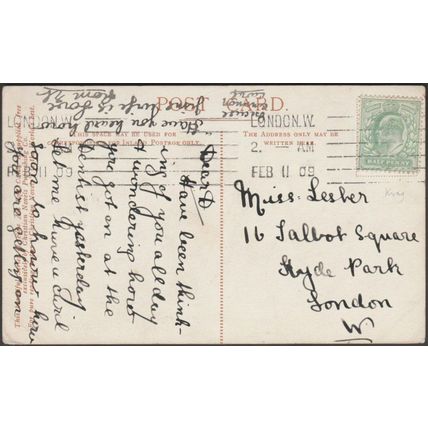 POST CARD.
THIS SPACE MAY BE USED FOR
CORRESPONDENCE FOR INLAND POSTAGE ONLY.
THE ADDRESS ONLY MAY BE
WRITTEN HERE.
LONDON. W.
FEB 11 09
LONDON. W.
2. - AM
FEB 11 09
HALF PENNY
Miss Lesher
16 Talbot Square
Hyde Park
London
W
Dear D
Have been think-
ing of you all day
& wondering how
you got on at the
dentist yesterday
Let me have a card
soon to know how
you are getting on
Have you heard how
wife is
Love
from
excuse
card